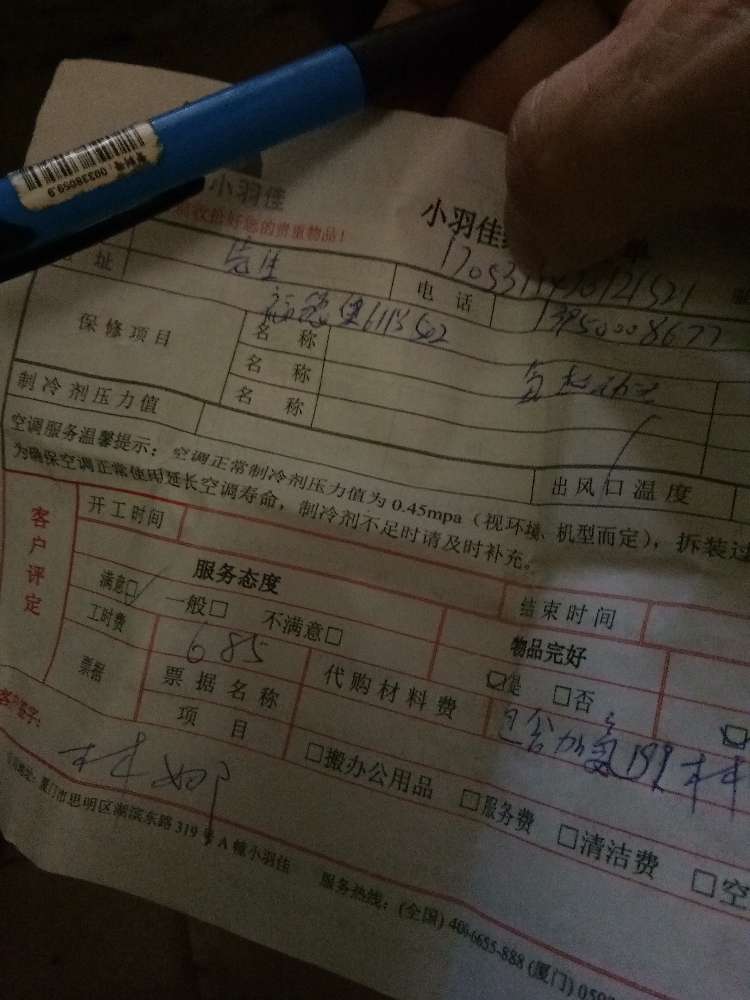 专利号 00338059.9
小羽佳
请收检好您的贵重物品！
小羽佳 单
1705311436121521
址
电 话
13950008677
保 修 项 目
名 称
名 称
名 称
制 冷 剂 压 力 值
出 风 口 温 度
空调服务温馨提示：空调正常制冷剂压力值为 0.45mpa（视环境、机型而定），拆装过
为确保空调正常使用延长空调寿命，制冷剂不足时请及时补充。
客户评定
开 工 时 间
结 束 时 间
服务态度
物品完好
满意□✓ 一般□ 不满意□
☑是 □否
工时费
685
代 购 材 料 费
票据
票 据 名 称
项 目
□搬办公用品 □服务费 □清洁费 □空
客户签字：
林
公司地址：厦门市思明区湖滨东路 319 号 A 幢小羽佳 服务热线：(全国) 400-6655-888 (厦门) 059